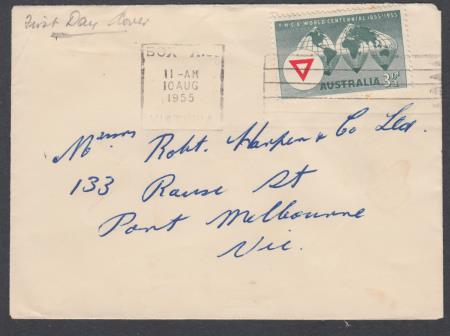 First Day Cover
Y·M·C·A WORLD CENTENNIAL 1855-1955
BOX HILL
11-AM
10 AUG
1955
VICTORIA
AUSTRALIA 3½D
Messrs Robt. Harper & Co Ltd.
133 Rouse St
Port Melbourne
Vic.